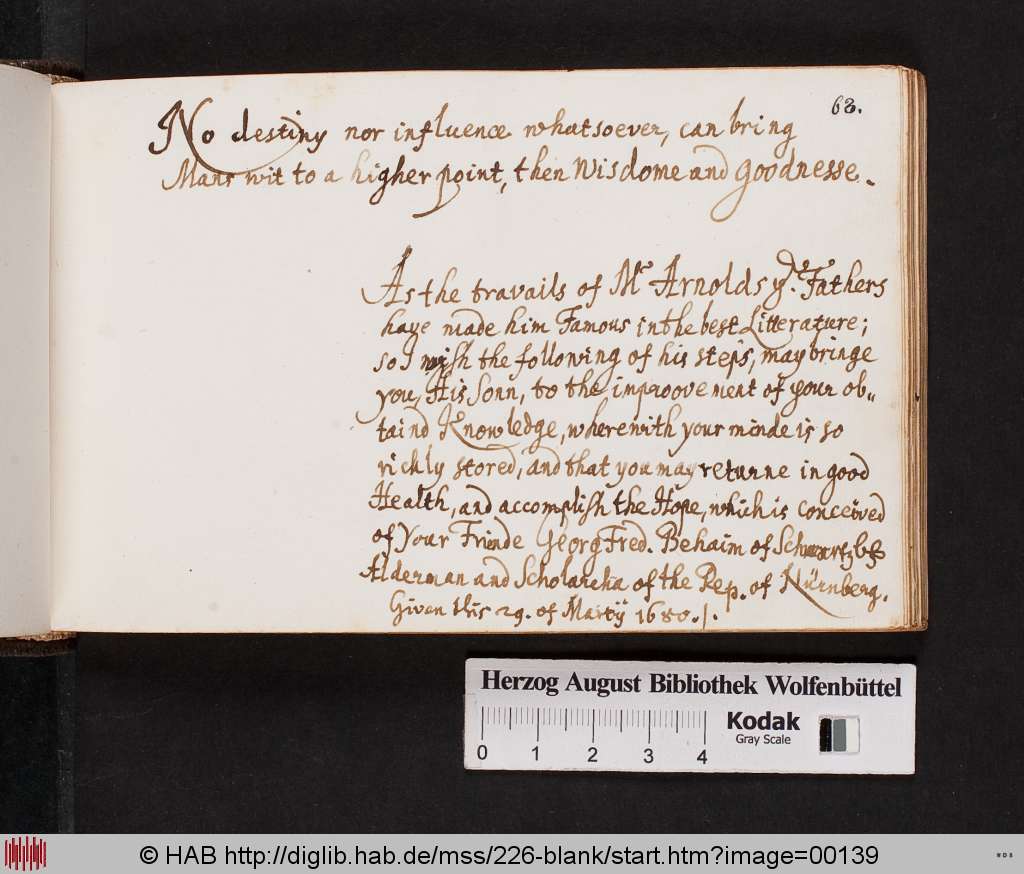 63.
No destiny nor influence whatsoever, can bring
Mans wit to a higher point, then Wisdome and Goodnesse.
As the travails of Mr Arnolds yr. Fathers
haue made him Famous in the best Litterature;
so I wish the following of his steps, may bringe
you, His Sonn, to the improovement of your ob„
taind Knowledge, wherewith your minde is so
richly stored, and that you may returne in good
Health, and accomplish the Hope, which is conceived
of Your Frinde Georg Fred. Behaim of
Alderman and Scholarcha of the Rep. of Nürnberg.
Given this 29. of Martÿ 1680./.
Herzog August Bibliothek Wolfenbüttel
0 1 2 3 4
Kodak
Gray Scale
© HAB http://diglib.hab.de/mss/226-blank/start.htm?image=00139
WDB